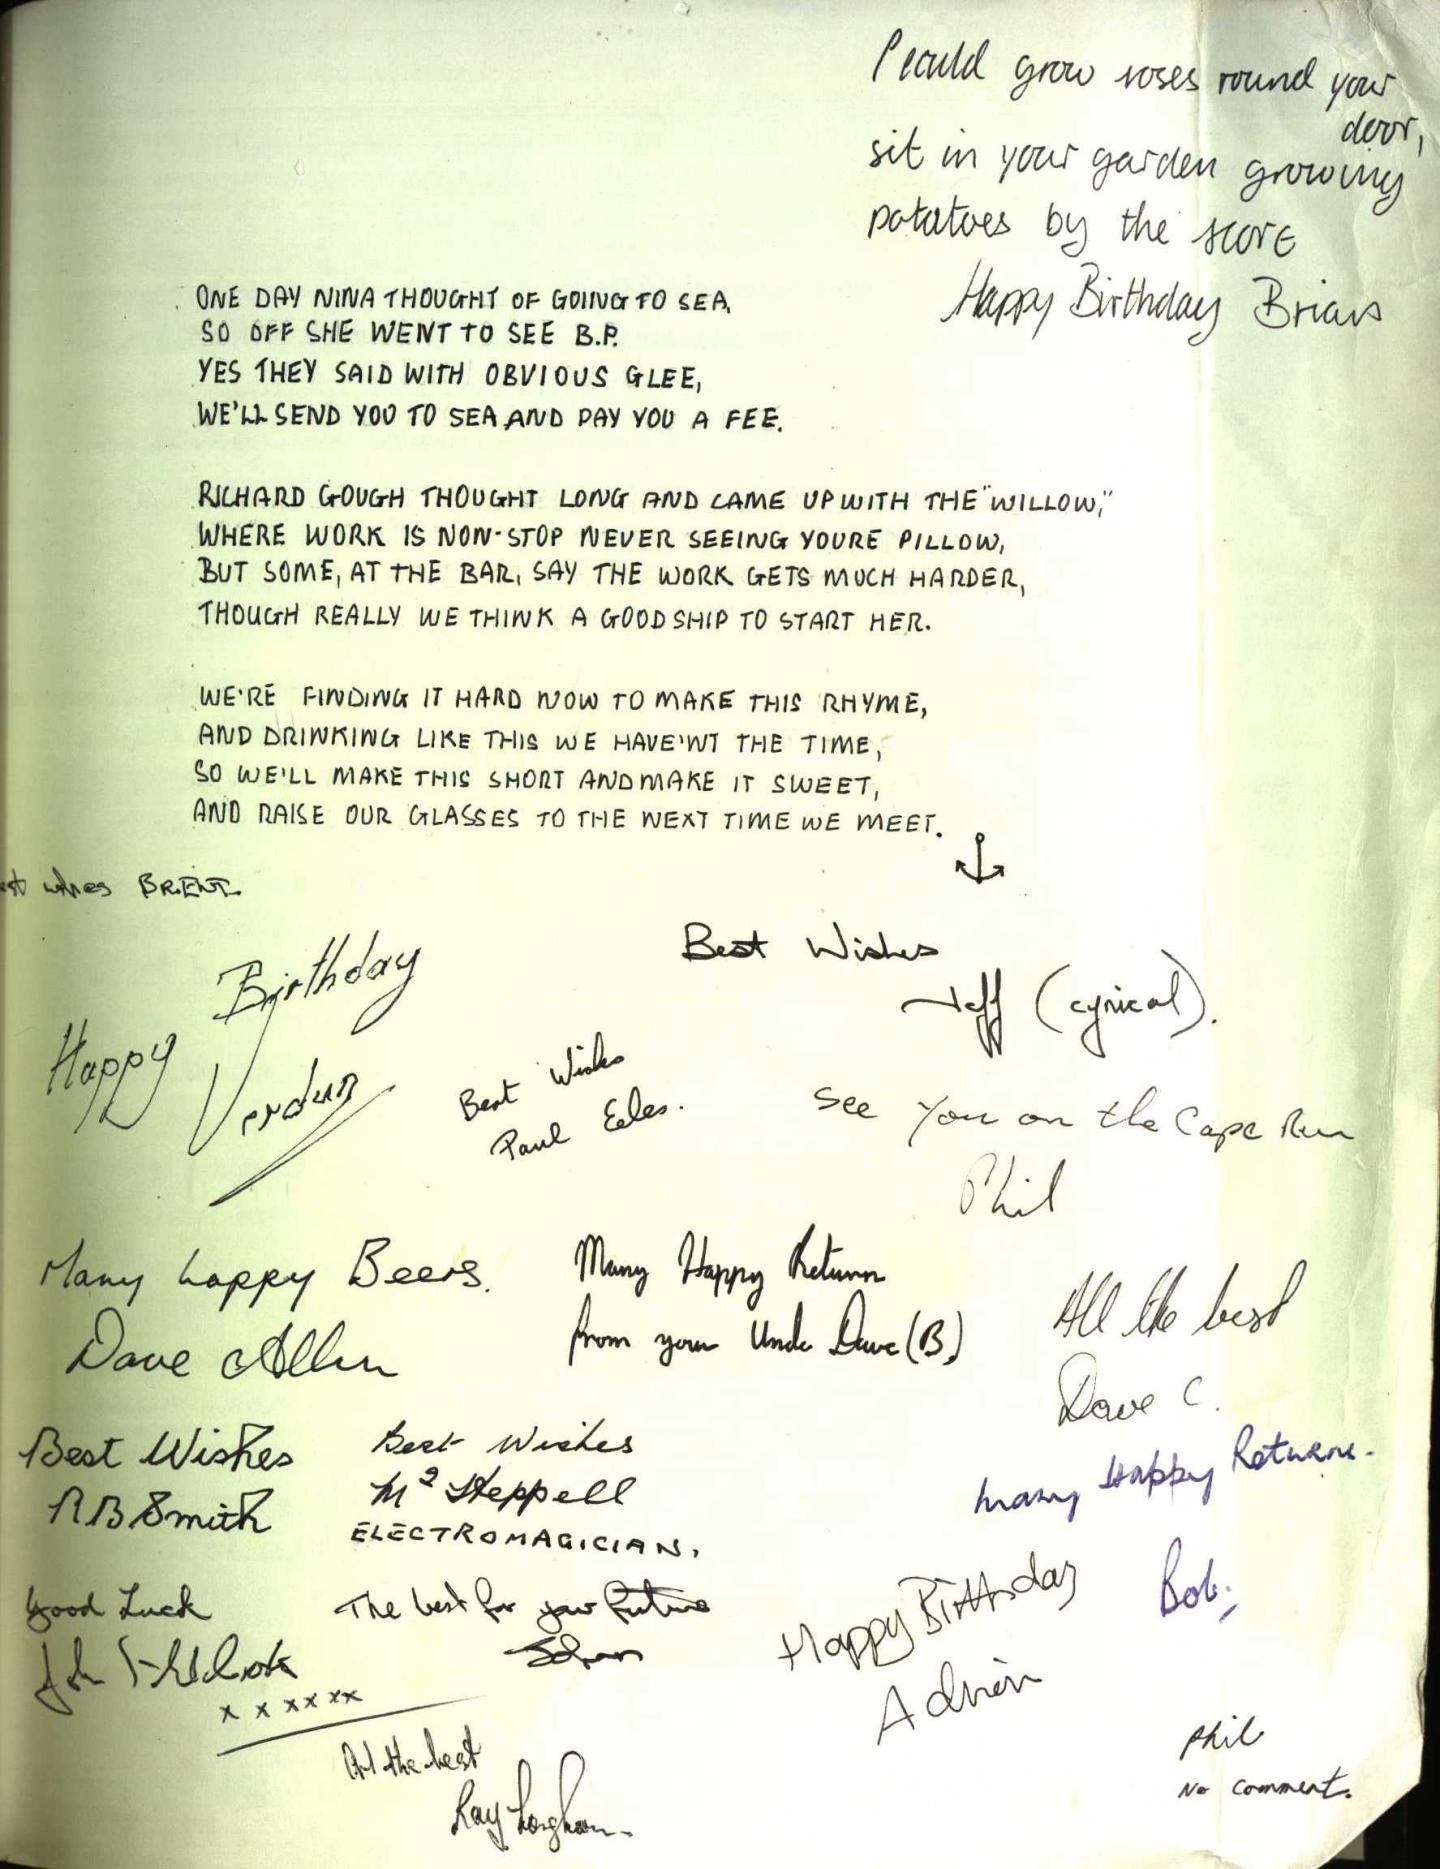 I could grow roses round your
door,
sit in your garden growing
potatoes by the score
Happy Birthday Brian
ONE DAY NINA THOUGHT OF GOING TO SEA,
SO OFF SHE WENT TO SEE B.P.
YES THEY SAID WITH OBVIOUS GLEE,
WE'LL SEND YOU TO SEA AND PAY YOU A FEE.
RICHARD GOUGH THOUGHT LONG AND CAME UP WITH THE "WILLOW",
WHERE WORK IS NON-STOP NEVER SEEING YOURE PILLOW,
BUT SOME, AT THE BAR, SAY THE WORK GETS MUCH HARDER,
THOUGH REALLY WE THINK A GOOD SHIP TO START HER.
WE'RE FINDING IT HARD NOW TO MAKE THIS RHYME,
AND DRINKING LIKE THIS WE HAVE'NT THE TIME,
SO WE'LL MAKE THIS SHORT AND MAKE IT SWEET,
AND RAISE OUR GLASSES TO THE NEXT TIME WE MEET.
est wishes BRENT
Best Wishes
Jeff (cynical).
Happy Birthday
Best Wishes
Paul Eeles.
See you on the Cape Run
Phil
Many happy Beers.
Dave Allen
Many Happy Return
from your Uncle Dave (B)
All the best
Dave C.
Best Wishes
R B Smith
Best Wishes
M² Steppell
ELECTROMAGICIAN.
Many Happy Returns.
Bob.
Good Luck
John
x x x x x x
The best for your future
Happy Birthday
Adrien
All the best
Ray
Phil
No comment.